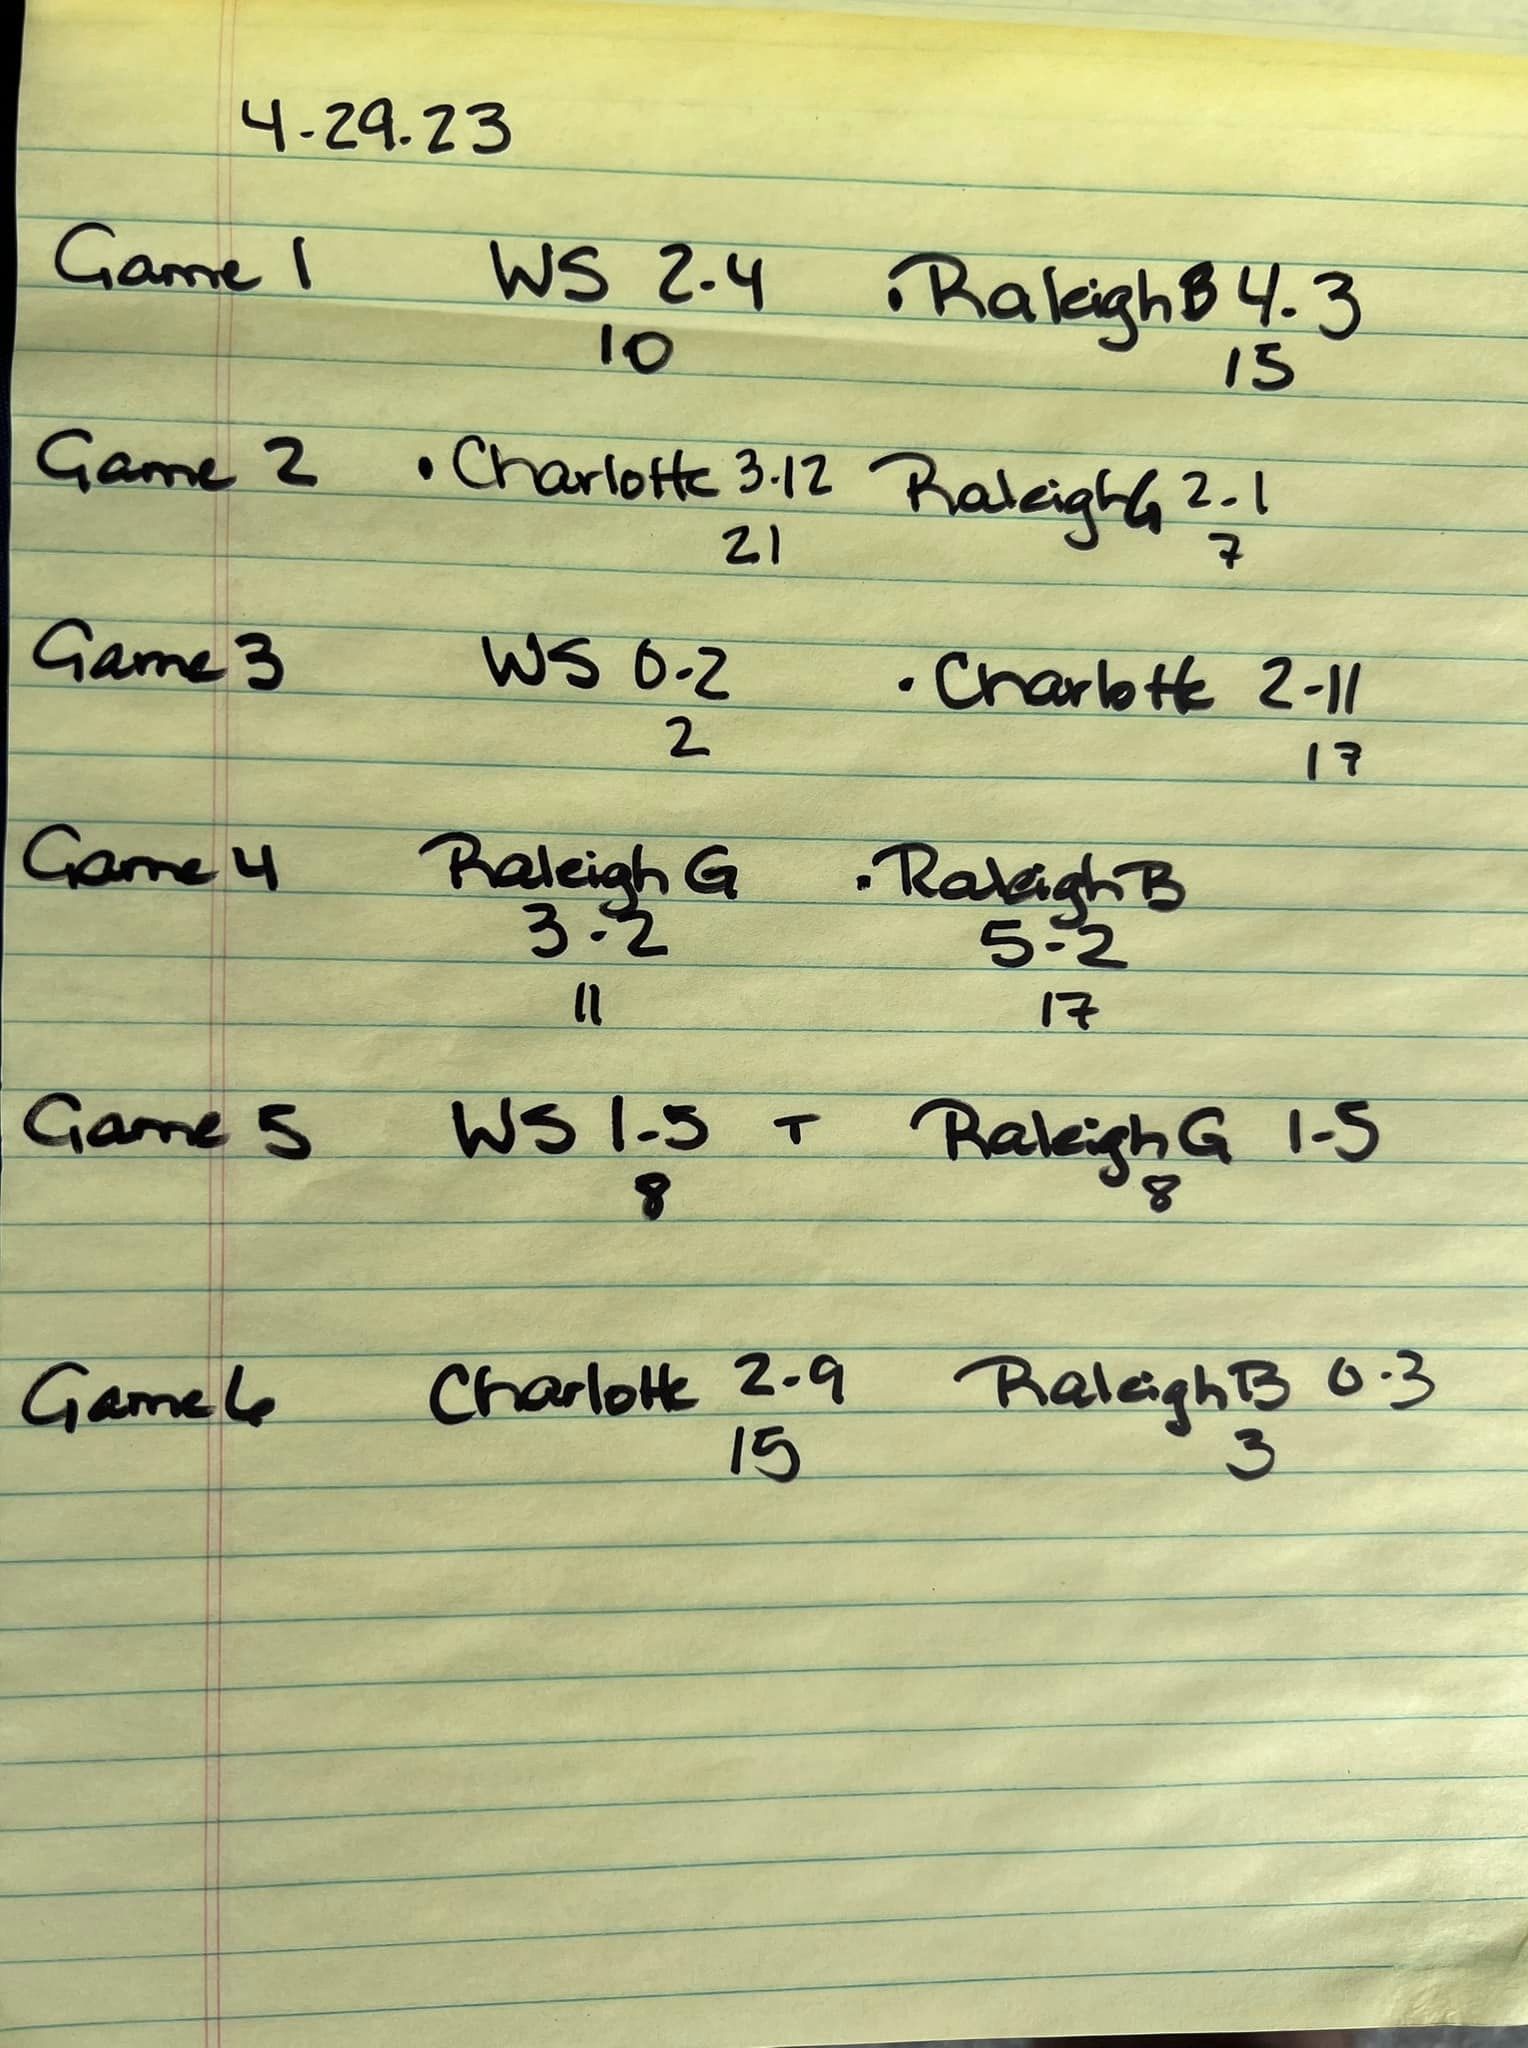 4-29.23
Game 1 WS 2-4 • Raleigh B 4-3
10 15
Game 2 • Charlotte 3-12 Raleigh G 2-1
21 7
Game 3 WS 0-2 • Charlotte 2-11
2 17
Game 4 Raleigh G • Raleigh B
3-2 5-2
11 17
Game 5 WS 1-5 T Raleigh G 1-5
8 8
Game 6 Charlotte 2-9 Raleigh B 0-3
15 3